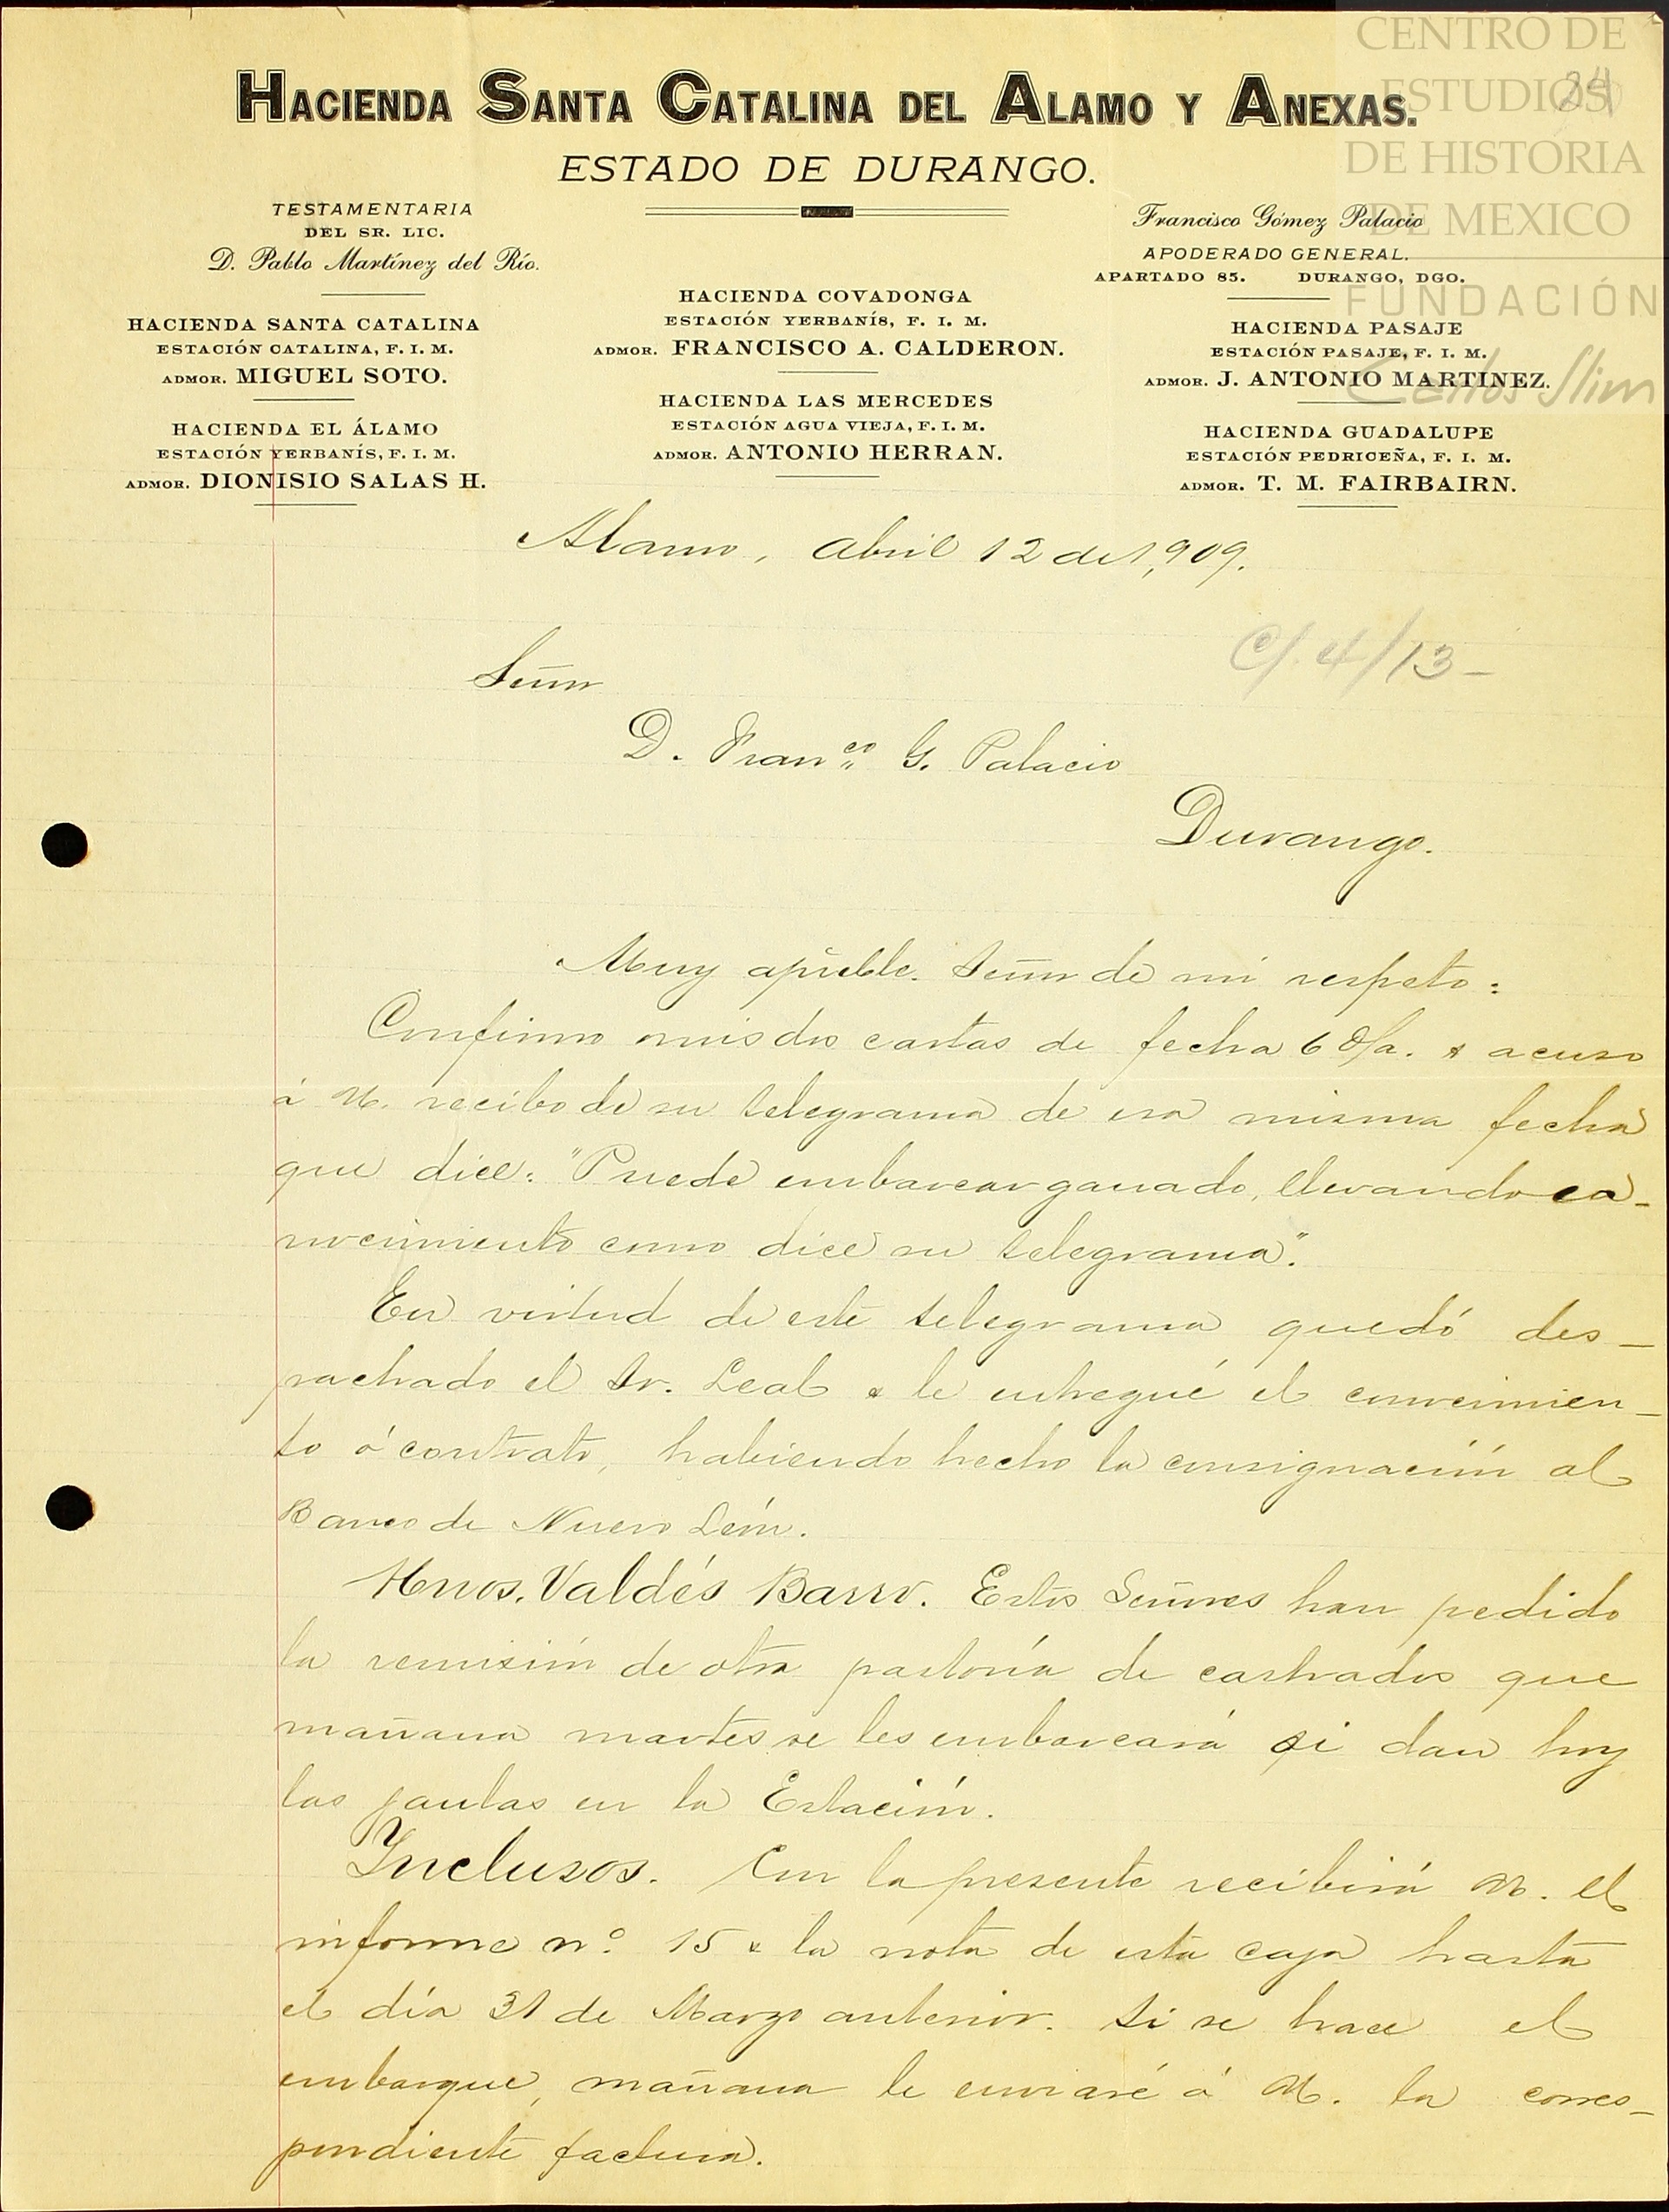 CENTRO DE
ESTUDIOS
DE HISTORIA
DE MEXICO
FUNDACIÓN
Carlos Slim
24
HACIENDA SANTA CATALINA DEL ALAMO Y ANEXAS.
ESTADO DE DURANGO.
TESTAMENTARIA
DEL SR. LIC.
D. Pablo Martínez del Río.
HACIENDA SANTA CATALINA
ESTACIÓN CATALINA, F. I. M.
ADMOR. MIGUEL SOTO.
HACIENDA EL ÁLAMO
ESTACIÓN YERBANÍS, F. I. M.
ADMOR. DIONISIO SALAS H.
HACIENDA COVADONGA
ESTACIÓN YERBANÍS, F. I. M.
ADMOR. FRANCISCO A. CALDERON.
HACIENDA LAS MERCEDES
ESTACIÓN AGUA VIEJA, F. I. M.
ADMOR. ANTONIO HERRAN.
Francisco Gómez Palacio
APODERADO GENERAL.
APARTADO 85. DURANGO, DGO.
HACIENDA PASAJE
ESTACIÓN PASAJE, F. I. M.
ADMOR. J. ANTONIO MARTINEZ.
HACIENDA GUADALUPE
ESTACIÓN PEDRICEÑA, F. I. M.
ADMOR. T. M. FAIRBAIRN.
Alamo, Abril 12 de 1,909.
C/. 4/13-
Señor
D. Franco. G. Palacio
Durango.
Muy apreble. Señor de mi respeto:
Confirmo mis dos cartas de fecha 6 d/a. & acuso
á U. recibo de su telegrama de esa misma fecha
que dice: "Puede embarcar ganado, llevando co-
nocimiento como dice su telegrama".
En virtud de este telegrama quedó des-
pachado el Sr. Leal & le entregué el conocimien-
to ó contrato, habiendo hecho la consignación al
Banco de Nuevo León.
Hnos. Valdés Barro. Estos Señores han pedido
la remisión de otra partoría de castrados que
mañana martes se les embarcará si dan hoy
las jaulas en la Estación.
Inclusos. Con la presente recibirá U. el
informe no. 15 & la nota de esta caja hasta
el día 31 de Marzo anterior. Si se hace el
embarque, mañana le enviaré á U. la corres-
pondiente factura.